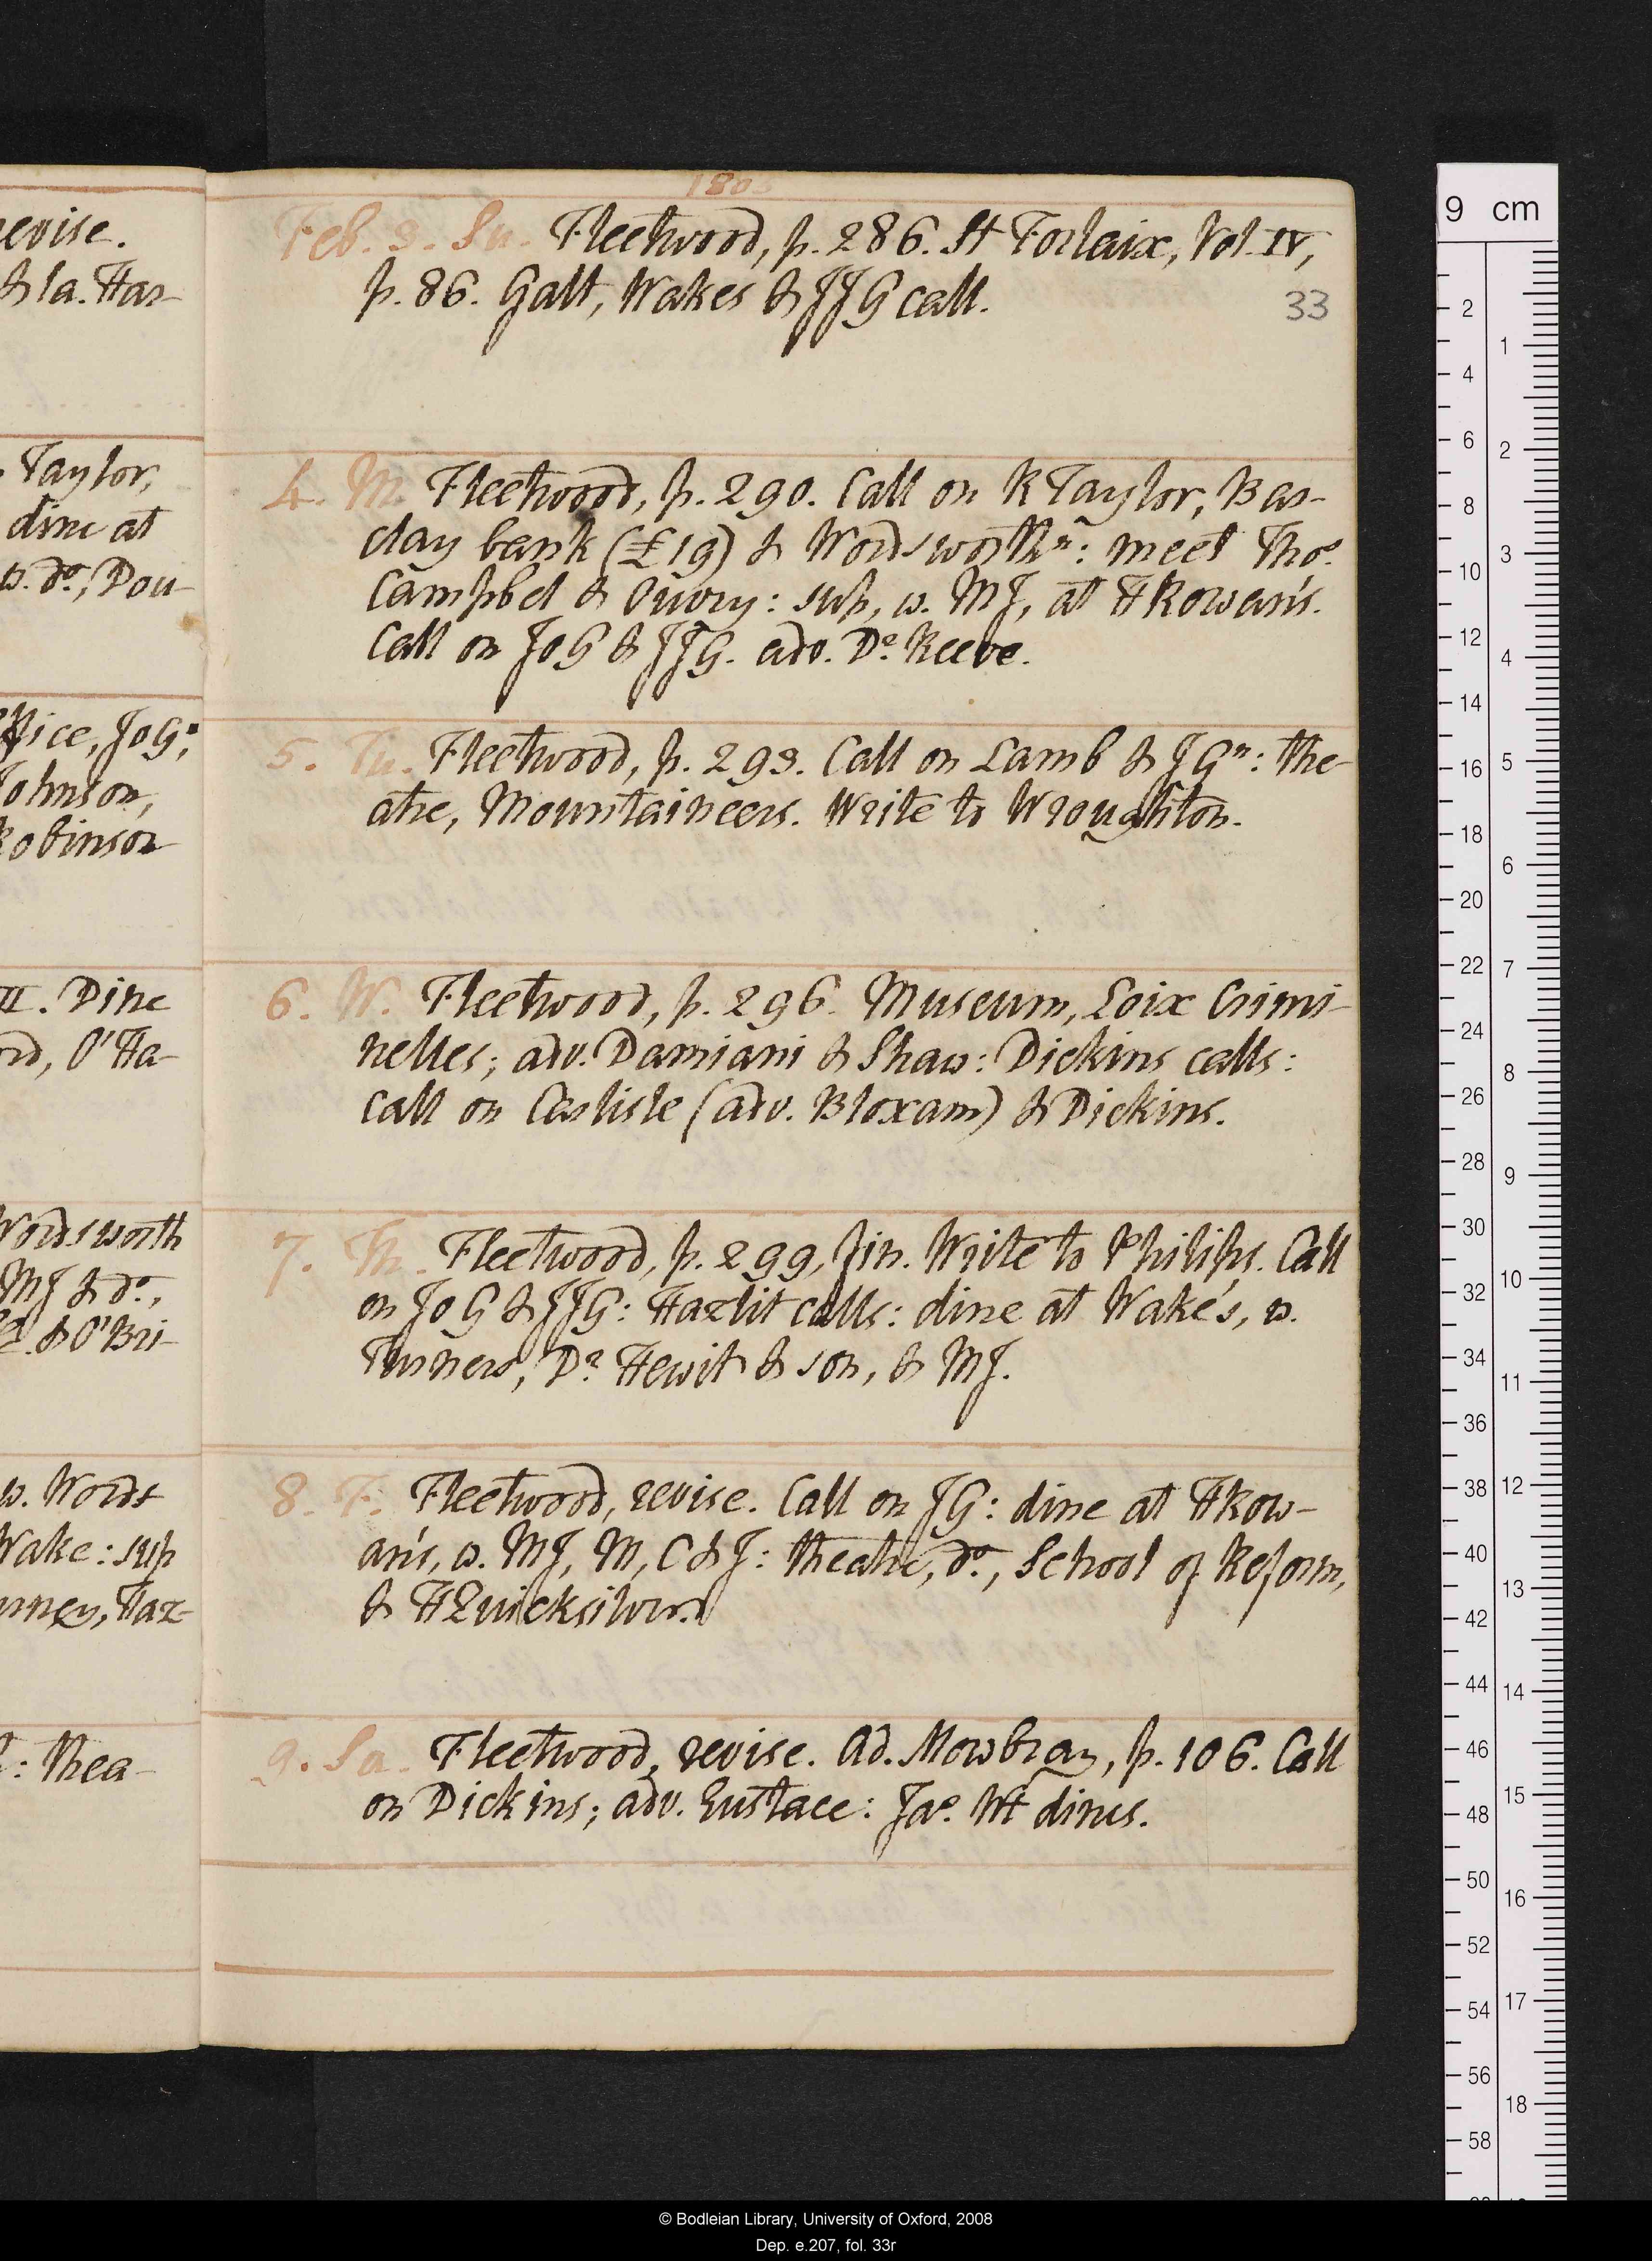 1805
Feb. 3. Su. Fleetwood, p. 286. St Forlaix, Vol. IV,
p. 86. Galt, Wakes & JJG call.
33
4. M. Fleetwood, p. 290. Call on R Taylor, Bar-
clay bank (£19) & Wordsworthⁿ: meet Thoˢ
Campbel & Ouvry: sup, w. MJ, at HRowan's.
Call on JoG & JJG. adv. Dʳ Reeve.
5. Tu. Fleetwood, p. 293. Call on Lamb & JGⁿ: the-
atre, Mountaineers. Write to Wroughton.
6. W. Fleetwood, p. 296. Museum, Loix Crimi-
nelles; adv. Damiani & Shaw: Dickins calls:
call on Carlisle (adv. Bloxam) & Dickins.
7. Th. Fleetwood, p. 299, fin. Write to Philips. Call
on JoG & JJG: Hazlit calls: dine at Wake's, w.
Turners, Dʳ Hewit & son, & MJ.
8. F. Fleetwood, revise. Call on JG: dine at HRow-
an's, w. MJ, M, C & J: theatre, dᵒ, School of Reform,
& HQuicksilver.
9. Sa. Fleetwood, revise. Ad. Mowbray, p. 106. Call
on Dickins; adv. Eustace: Jaˢ. Wt dines.
evise.
& la. Har-
Taylor,
dine at
w. dᵒ, Dou-
ice, JoGⁿ,
Johnson,
Robinson
II. Dine
rd, O'Ha-
Wordsworth
MJ & dᵒ,
& O'Bri-
w. Words
Wake: sup
rney, Haz-
: thea-
9 cm
2
4
6
8
10
12
14
16
18
20
22
24
26
28
30
32
34
36
38
40
42
44
46
48
50
52
54
56
58
1
2
3
4
5
6
7
8
9
10
11
12
13
14
15
16
17
18
© Bodleian Library, University of Oxford, 2008
Dep. e.207, fol. 33r